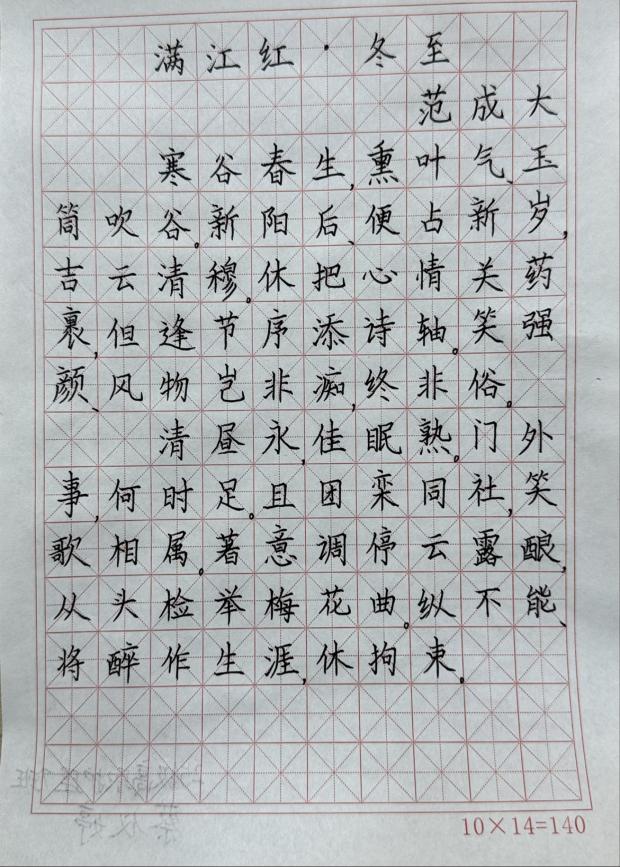 满江红·冬至
范成大
寒谷春生,熏叶气、玉
筒吹谷。新阳后、便占新岁,
吉云清穆。休把心情关药
裹,但逢节序添诗轴。笑强
颜、风物岂非痴,终非俗。
清昼永,佳眠熟。门外
事,何时足。且团栾同社,笑
歌相属。著意调停云露酿,
从头检举梅花曲。纵不能、
将醉作生涯,休拘束。
10×14=140